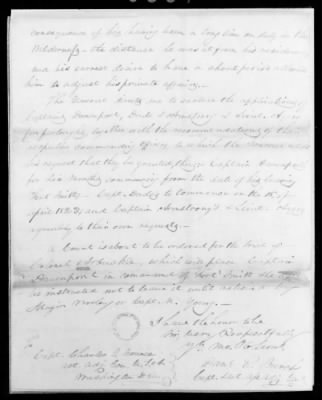 consequence of his having been a long time on duty in the
Wilderness - the distance he was at from his residence
and his earnest desire to have a short period allowed
him to adjust his private affairs.
The General directs me to enclose the applications of
Captains Davenport, Dade & Armstrong & Lieut.
for furloughs, together with the recommendations of their
respective commanding officers to which the General adds
his request that they be granted, that is Captain Davenport
for six months commencing from the date of his leaving
Fort Smith - Capt. Dade's to commence on the 15th
April 1828, and Captain Armstrong's & Lieut.
agreeably to their own requests. -
A Court is about to be ordered for the trial of
Colonel Arbuckle, which will place Captain
Davenport in command of Fort Smith - He
is instructed not to leave it until relieved by
Major or Capt. N. Young. -
I have the honor to be
Sir, Very Respectfully
Yr. Mo. Ob. Servt.
To
Capt. Charles J. Nourse
act. adj. Genl.
Washington